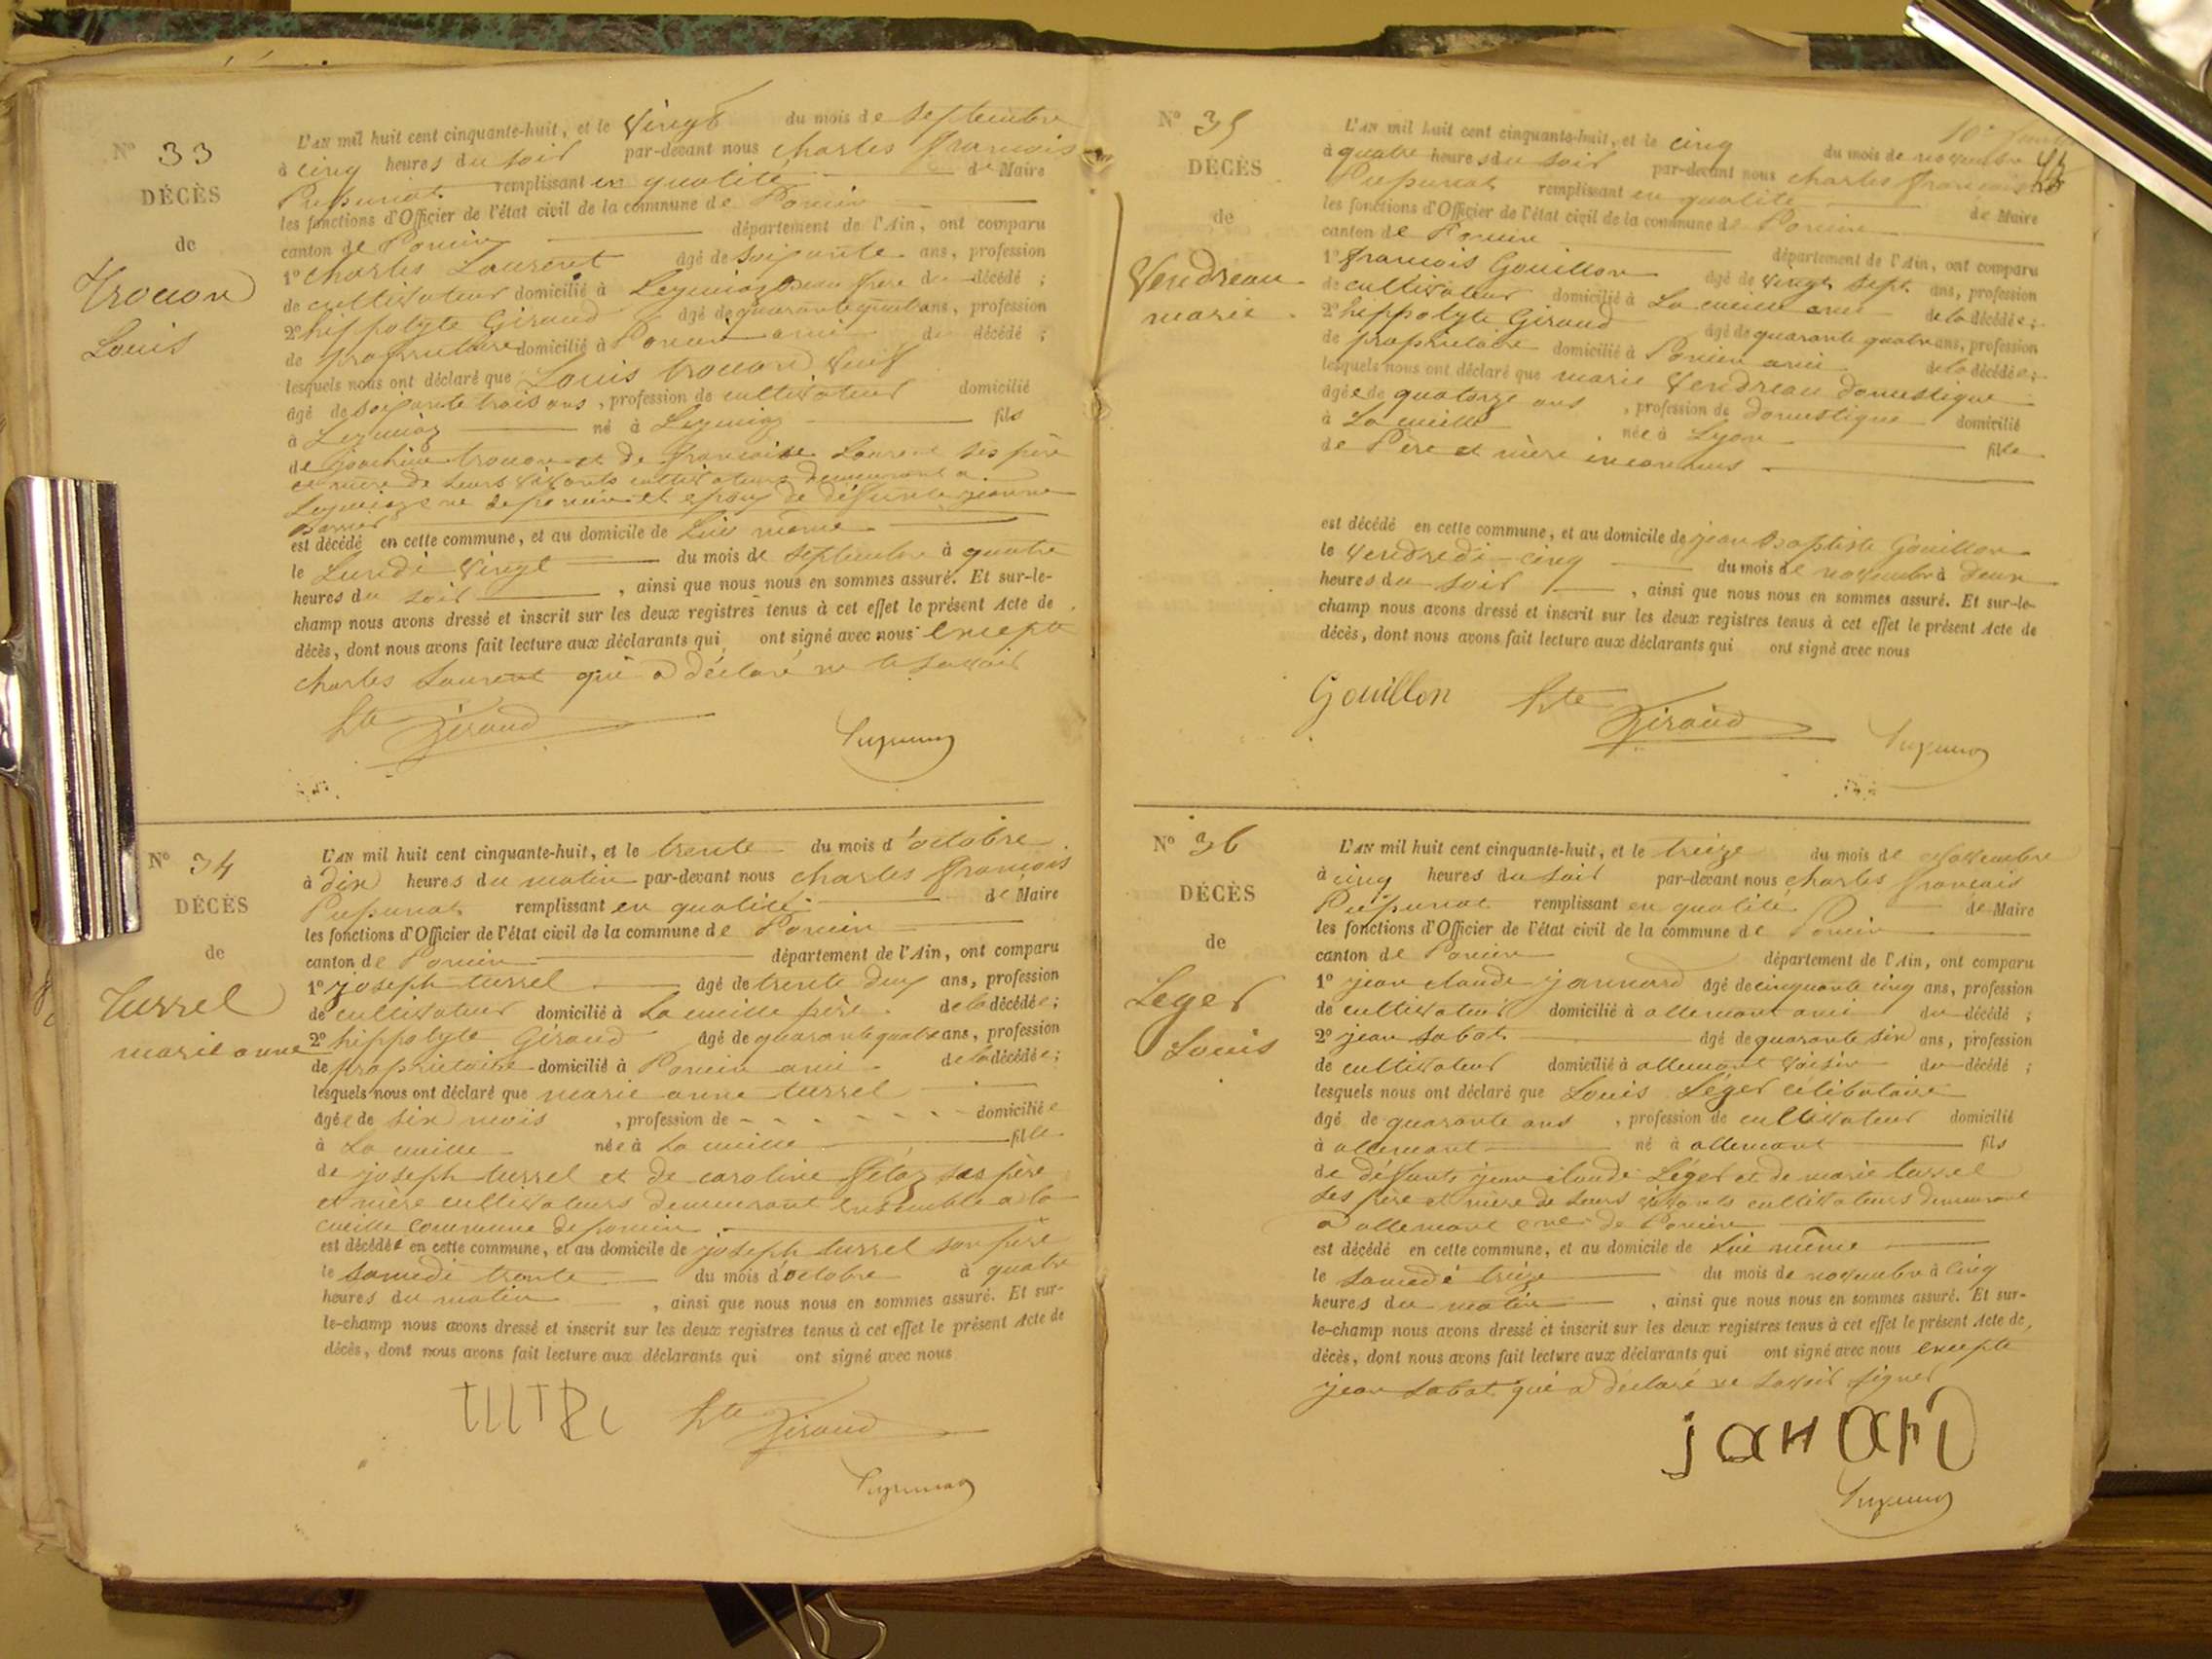 N° 33
DÉCÈS
de
Trouon
Louis
L'AN mil huit cent cinquante-huit, et le vingt du mois de septembre
à cinq heures du soir par-devant nous charles francois
remplissant en qualité de Maire
les fonctions d'Officier de l'état civil de la commune de Poncin
canton de Poncin département de l'Ain, ont comparu
1° Charles Laurent âgé de soixante ans, profession
de cultivateur domicilié à Leymiaz beau frere du décédé ;
2° hippolyte Giraud âgé de quarante quatre ans, profession
de proprietaire domicilié à Poncin ami du décédé ;
lesquels nous ont déclaré que Louis trouon veuf
âgé de soixante trois ans, profession de cultivateur domicilié
à Leymiaz né à Leymiaz fils
de joachim trouon et de francoise Laurent ses père
et mère de leurs vivants cultivateurs demeurant a
Leymiaz cne de poncin et epoux de défunte jeanne
est décédé en cette commune, et au domicile de Lui même
le Lundi vingt du mois de septembre à quatre
heures du soir, ainsi que nous nous en sommes assuré. Et sur-le-
champ nous avons dressé et inscrit sur les deux registres tenus à cet effet le présent Acte de
décès, dont nous avons fait lecture aux déclarants qui ont signé avec nous excepté
charles Laurent qui a déclaré ne le savoir
hte Giraud
N° 34
DÉCÈS
de
Turrel
marie anne
L'AN mil huit cent cinquante-huit, et le trente du mois d'octobre
à dix heures du matin par-devant nous charles francois
remplissant en qualité de Maire
les fonctions d'Officier de l'état civil de la commune de Poncin
canton de Poncin département de l'Ain, ont comparu
1° joseph turrel âgé de trente deux ans, profession
de cultivateur domicilié à La cueille père de la décédée ;
2° hippolyte Giraud âgé de quarante quatre ans, profession
de proprietaire domicilié à Poncin ami de la décédée ;
lesquels nous ont déclaré que marie anne turrel
âgée de six mois, profession de - - - - - - domiciliée
à La cueille née à La cueille fille
de joseph turrel et de caroline ses père
et mère cultivateurs demeurant ensemble a la
cueille commune de poncin
est décédée en cette commune, et au domicile de joseph turrel son père
le samedi trente du mois d'octobre à quatre
heures du matin, ainsi que nous nous en sommes assuré. Et sur-
le-champ nous avons dressé et inscrit sur les deux registres tenus à cet effet le présent Acte de
décès, dont nous avons fait lecture aux déclarants qui ont signé avec nous
hte Giraud
N° 35
DÉCÈS
de
Vendreau
marie
L'AN mil huit cent cinquante-huit, et le cinq du mois de novembre
à quatre heures du soir par-devant nous charles francois
remplissant en qualité de Maire
les fonctions d'Officier de l'état civil de la commune de Poncin
canton de Poncin département de l'Ain, ont comparu
1° francois Gouillon âgé de vingt sept ans, profession
de cultivateur domicilié à La cueille ami de la décédée ;
2° hippolyte Giraud âgé de quarante quatre ans, profession
de proprietaire domicilié à Poncin ami de la décédée ;
lesquels nous ont déclaré que marie Vendreau domestique
âgée de quatorze ans, profession de domestique domicilié
à La cueille née à Lyon fille
de Père et mère inconnus
est décédé en cette commune, et au domicile de jean baptiste Gouillon
le vendredi cinq du mois de novembre à deux
heures du soir, ainsi que nous nous en sommes assuré. Et sur-le-
champ nous avons dressé et inscrit sur les deux registres tenus à cet effet le présent Acte de
décès, dont nous avons fait lecture aux déclarants qui ont signé avec nous
Gouillon hte Giraud
N° 36
DÉCÈS
de
Leger
Louis
L'AN mil huit cent cinquante-huit, et le treize du mois de novembre
à cinq heures du soir par-devant nous charles francois
remplissant en qualité de Maire
les fonctions d'Officier de l'état civil de la commune de Poncin
canton de Poncin département de l'Ain, ont comparu
1° jean claude jannard âgé de cinquante cinq ans, profession
de cultivateur domicilié à allement ami du décédé ;
2° jean Labat âgé de quarante six ans, profession
de cultivateur domicilié à allement voisin du décédé ;
lesquels nous ont déclaré que Louis Léger célibataire
âgé de quarante ans, profession de cultivateur domicilié
à allement né à allement fils
de défunts jean claude Léger et de marie turrel
ses père et mère de leurs vivants cultivateurs demeurant
a allement cne de Poncin
est décédé en cette commune, et au domicile de Lui même
le samedi treize du mois de novembre à cinq
heures du matin, ainsi que nous nous en sommes assuré. Et sur-
le-champ nous avons dressé et inscrit sur les deux registres tenus à cet effet le présent Acte de
décès, dont nous avons fait lecture aux déclarants qui ont signé avec nous excepté
jean Labat qui a déclaré ne savoir signer